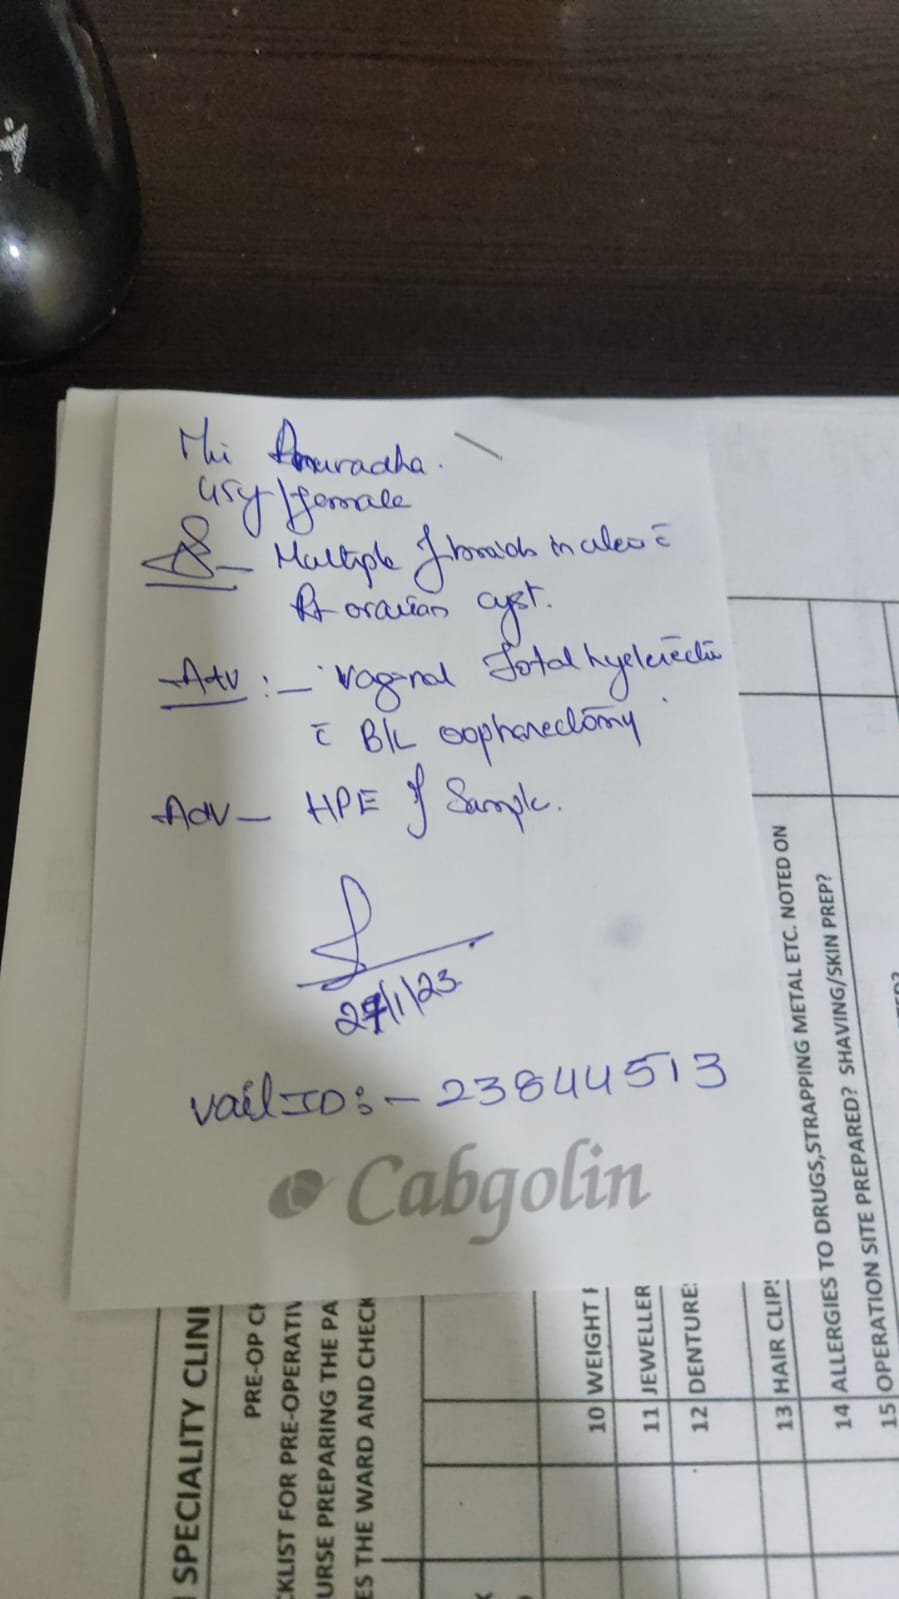 Anuradha.
45y/female
Multiple fibroids in uterus c̄
Rt ovarian cyst.
Adv :- Vaginal Total hysterecto
c̄ B/L oophorectomy
Adv - HPE of Sample.
27/1/23
vail ID:- 23844513
Cabgolin
SPECIALITY CLINI
PRE-OP CH
CKLIST FOR PRE-OPERATIV
URSE PREPARING THE PA
ES THE WARD AND CHECK
10 WEIGHT
11 JEWELLER
12 DENTURE
13 HAIR CLIPS
14 ALLERGIES TO DRUGS,STRAPPING METAL ETC. NOTED ON
15 OPERATION SITE PREPARED? SHAVING/SKIN PREP?